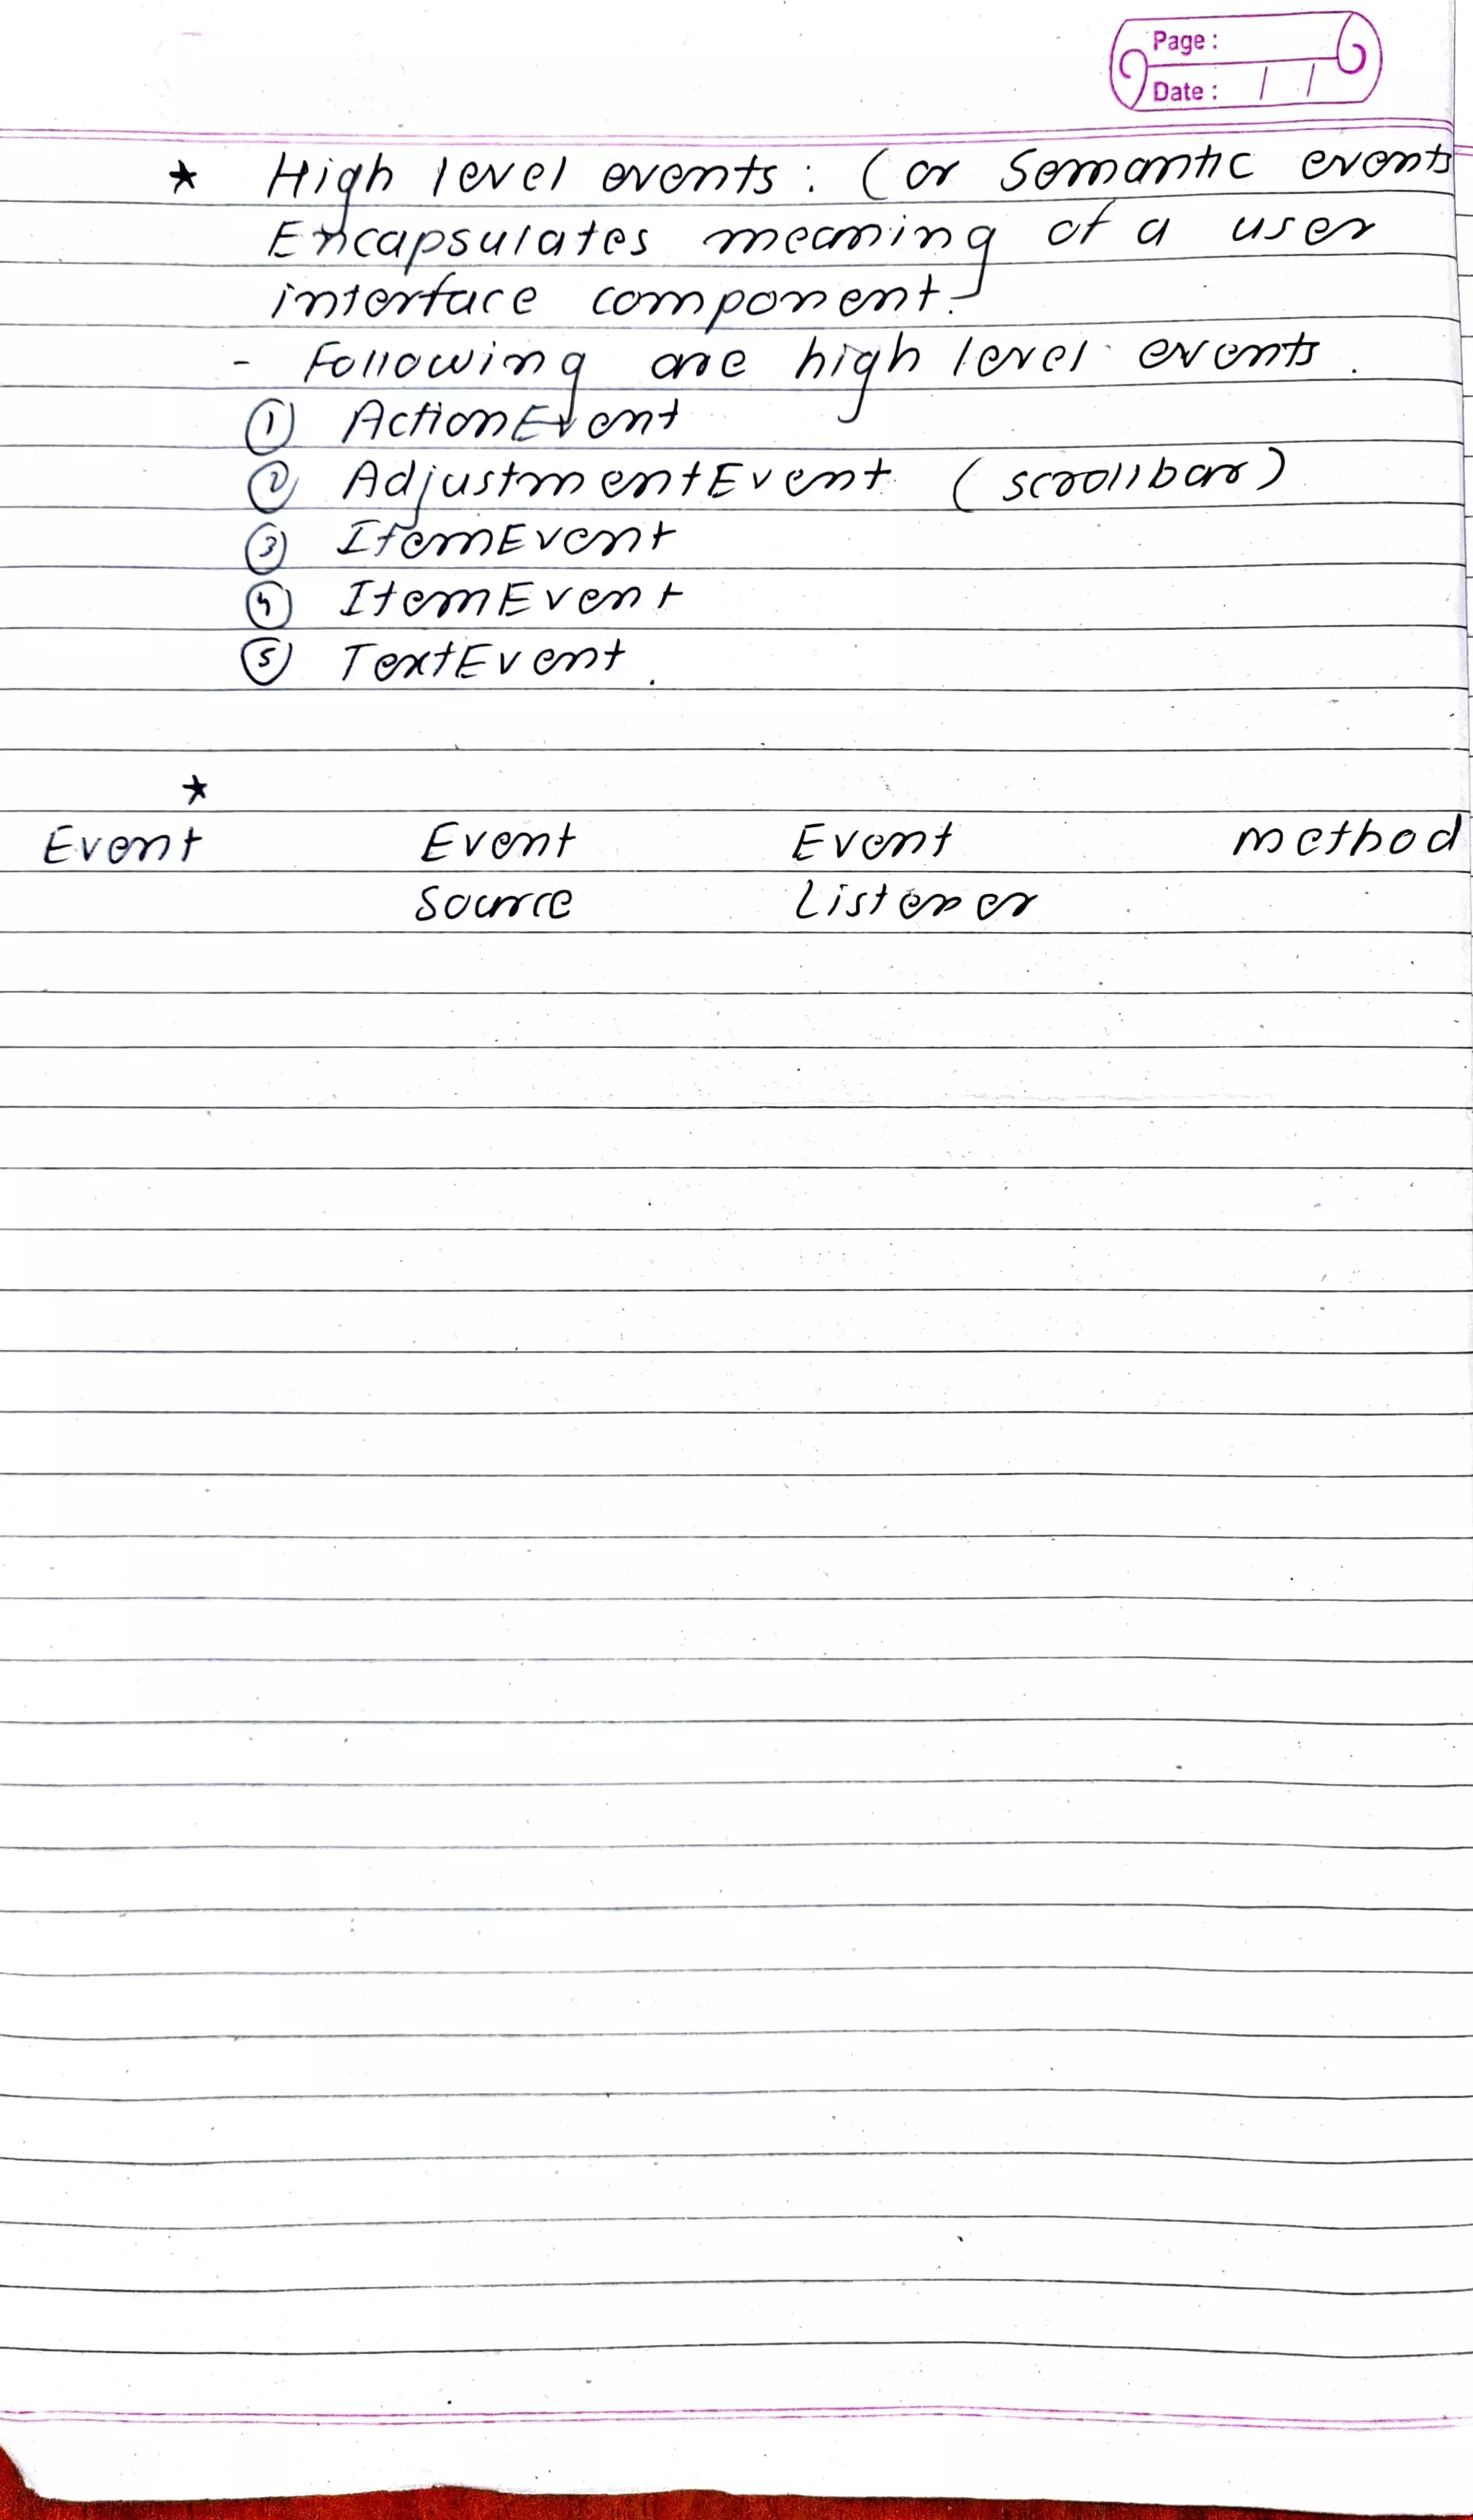 Page :
Date : / /
★ High level events : (or Semantic events
Encapsulates meaning of a user
interface component.
- Following are high level events.
① ActionEvent
② AdjustmentEvent (scrollbar)
③ ItemEvent
④ ItemEvent
⑤ TextEvent.
★
Event Event Event method
Source Listener